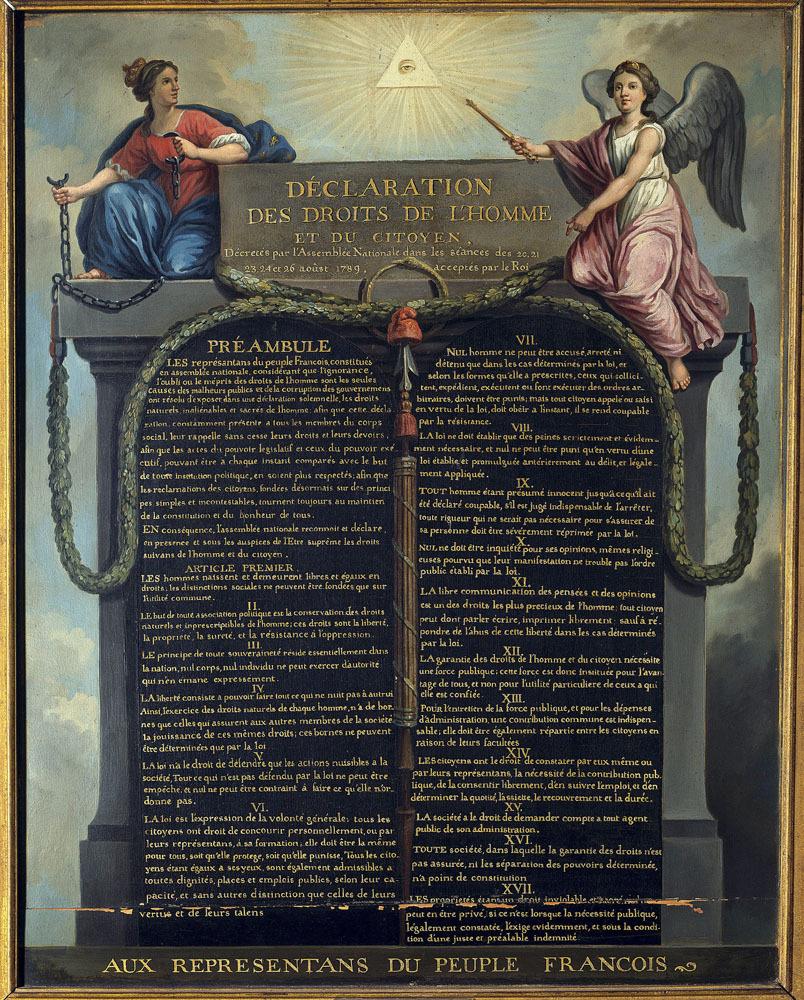 DÉCLARATION
DES DROITS DE L'HOMME
ET DU CITOYEN,
Décretés par l'Assemblée Nationale dans les séances des 20, 21
23, 24 et 26 aoûst 1789, acceptés par le Roi
PRÉAMBULE
LES représentans du peuple François, constitués
en assemblée nationale, considérant que l'ignorance,
l'oubli ou le mépris des droits de l'homme sont les seules
causes des malheurs publics et de la corruption des gouvernemens
ont résolu d'exposer dans une déclaration solemnelle, les droits
naturels, inaliénables et sacrés de l'homme; afin que cette décla
ration, constamment présente a tous les membres du corps
social, leur rappelle sans cesse leurs droits et leurs devoirs,
afin que les actes du pouvoir legislatif et ceux du pouvoir exé
cutif, pouvant être à chaque instant comparés avec le but
de toute institution politique, en soient plus respectés; afin que
les reclamations des citoyens, fondées désormais sur des princi
pes simples et incontestables, tournent toujours au maintien
de la constitution et du bonheur de tous.
EN conséquence, l'assemblée nationale reconnoit et déclare,
en presence et sous les auspices de l'Etre suprême les droits
suivans de l'homme et du citoyen.
ARTICLE PREMIER.
LES hommes naissent et demeurent libres et égaux en
droits; les distinctions sociales ne peuvent être fondées que sur
l'utilité commune.
II.
LE but de toute association politique est la conservation des droits
naturels et inprescriptibles de l'homme; ces droits sont la liberté,
la propriété, la sureté, et la résistance à l'oppression.
III.
LE principe de toute souveraineté réside essentiellement dans
la nation, nul corps, nul individu ne peut exercer d'autorité
qui n'en émane expressément.
IV
LA liberté consiste a pouvoir faire tout ce qui ne nuit pas à autrui
Ainsi, l'exercice des droits naturels de chaque homme, n'a de bor-
nes que celles qui assurent aux autres membres de la société
la jouissance de ces mêmes droits; ces bornes ne peuvent
être déterminées que par la loi
V
LA loi n'a le droit de défendre que les actions nuisibles a la
société, Tout ce qui n'est pas défendu par la loi ne peut être
empêché, et nul ne peut être contraint à faire ce qu'elle n'or-
donne pas.
VI.
LA loi est l'expression de la volonté générale; tous les
citoyens ont droit de concourir personnellement, ou par
leurs représentans, à sa formation; elle doit être la même
pour tous, soit qu'elle protege, soit qu'elle punisse, Tous les cito
yens étant égaux à ses yeux, sont également admissibles à
toutes dignités, places et emplois publics, selon leur ca-
pacité, et sans autres distinction que celles de leurs
vertus et de leurs talens
VII.
NUL homme ne peut être accusé, arreté, ni
détenu que dans les cas déterminés par la loi, et
selon les formes qu'elle a prescrites, ceux qui sollici-
tent, expédient, exécutent ou font exécuter des ordres ar-
bitraires, doivent être punis; mais tout citoyen appelé ou saisi
en vertu de la loi, doit obéir a l'instant, il se rend coupable
par la résistance.
VIII.
LA loi ne doit établir que des peines strictement et évidem-
ment nécessaire, et nul ne peut être puni qu'en vertu d'une
loi établie et promulguée antérierement au délit, et légale-
ment appliquée.
IX.
TOUT homme étant présumé innocent jusqu'à ce qu'il ait
été déclaré coupable, s'il est jugé indispensable de l'arrêter,
toute rigueur qui ne serait pas nécessaire pour s'assurer de
sa personne doit être sévèrement réprimée par la loi.
X.
NUL ne doit être inquiété pour ses opinions, mêmes religi
euses pourvu que leur manifestation ne trouble pas l'ordre
public établi par la loi.
XI.
LA libre communication des pensées et des opinions
est un des droits les plus precieux de l'homme; tout citoyen
peut donc parler écrire, imprimer librement: sauf à ré-
pondre de l'abus de cette liberté dans les cas déterminés
par la loi.
XII.
LA garantie des droits de l'homme et du citoyen nécessite
une force publique; cette force est donc instituée pour l'avan-
tage de tous, et non pour l'utilité particuliere de ceux a qui
elle est confiée.
XIII.
POUR l'entretien de la force publique, et pour les dépenses
d'administration, une contribution commune est indispen-
sable; elle doit être également répartie entre les citoyens en
raison de leurs facultées
XIV.
LES citoyens ont le droit de constater par eux même ou
par leurs représentans, la nécessité de la contribution pub-
lique, de la consentir librement, d'en suivre l'emploi, et d'en
déterminer la quotité, l'assiette, le recouvrement et la durée.
XV.
LA société a le droit de demander compte a tout agent
public de son administration.
XVI.
TOUTE société, dans laquelle la garantie des droits n'est
pas assurée, ni les séparation des pouvoirs déterminée,
n'a point de constitution
XVII.
LES propriétés étant un droit inviolable et sacré, nul ne
peut en être privé, si ce n'est lorsque la nécessité publique,
légalement constatée, l'exige evidemment, et sous la condi
tion d'une juste et préalable indemnité.
AUX REPRESENTANS DU PEUPLE FRANCOIS